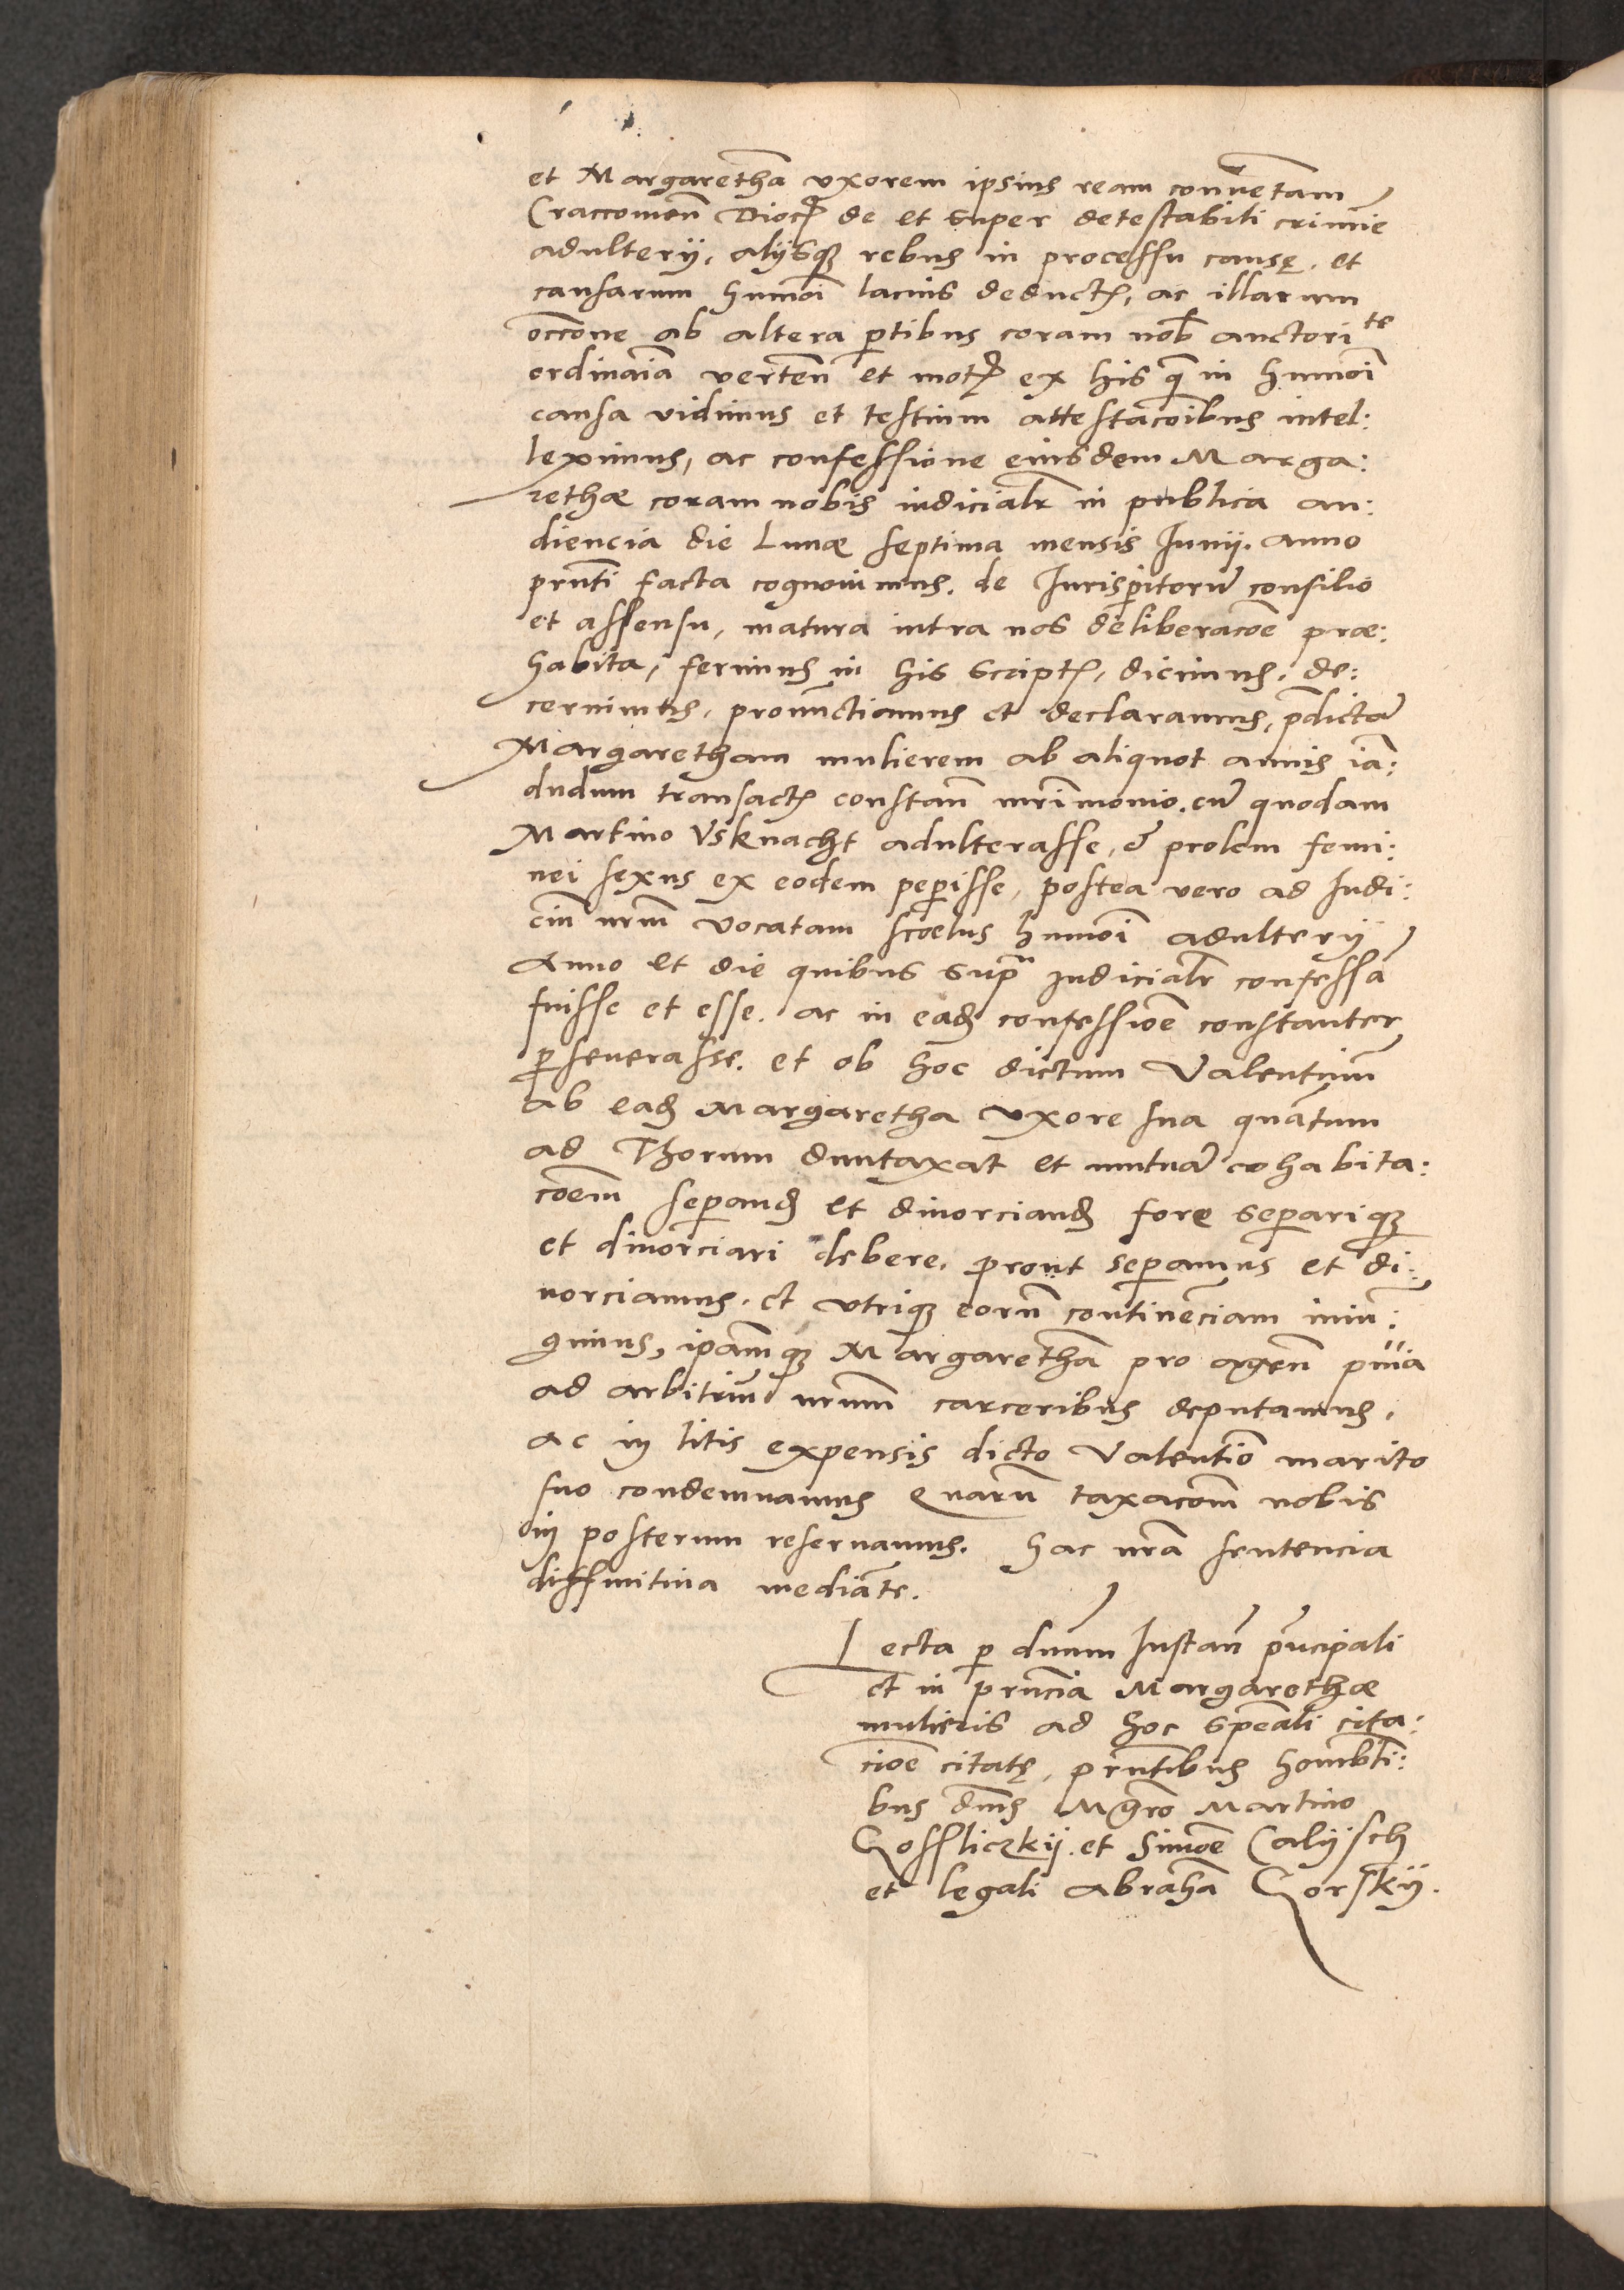 et Margarethā uxorem ipsius ream conuētam
Craccouieñ Dioć de et super detestabili crimīe
adulterij, alijsq3 rebus in processu causę, et
causarum humōi lacius deductꝭ, ac illarum
occōne ab altera ꝑtibus coram nob̄ auctorite
ordinaiā verteñ et motꝭ ex his quę in humōi
causa vidimus et testium attestacōibus intel:
leximus, ac confessione eiusdem Marga:
rethæ coram nobis iudicialr̄ in publica au:
diencia die Lunæ septima mensis Iunij. anno
pn̄ti facta cognouimus. de Iurisꝑitorū consilio
et assensu, matura intra nos deliberacōe præ:
habita, ferimus in his scriptꝭ, dicimus, de:
cernimus, pronūctiamus et declaramus, p̄dictā
Margaretham mulierem ab aliquot annis iā:
dudum transactꝭ constan̄ mr̄imonio. cū quodam
Martino Vsknacht adulterasse, & prolem femi:
nei sexus ex eodem peꝑisse, postea vero ad Iudi:
ciū nr̄m vocatam scoelus humōi adulterij
Anno et die quibus supra iudicialr̄ confessā
fuisse et esse. ac in eadꝫ confessiōe constanter
ꝑseuerasse. et ob hoc dictum Valentinū
ab eadꝫ Margaretha uxore sua quātum
ad Thorum duntaxat et mutuā cohabita:
cōem seꝑandꝫ et diuorciandꝫ fore seꝑariq3
et diuorciari debere, prout seꝑamus et di:
uorciamus. et vtriq3 eorū continēciam iniū:
gimus, ip̄amq3 Margarethā pro ageñ pn̄ia
ad arbitriū nr̄um carceribus deputamus,
ac in litis expensis dicto Valentīo marito
suo condemnamus Quarū taxacōm nobis
in posterum reseruamus. hac nr̄a sentencia
diffinitiua mediāte.
Lecta ꝑ dn̄um Instan̄ prīcipali
et in pn̄cia Margarethæ
mulieris ad hoc spēali cita:
ciōe citatę, pn̄tibus honorabili:
bus dn̄is Mgr̄o Martino
Gossliczkij. et Simōe Calijsch
et legali Abrahā Gorskij.